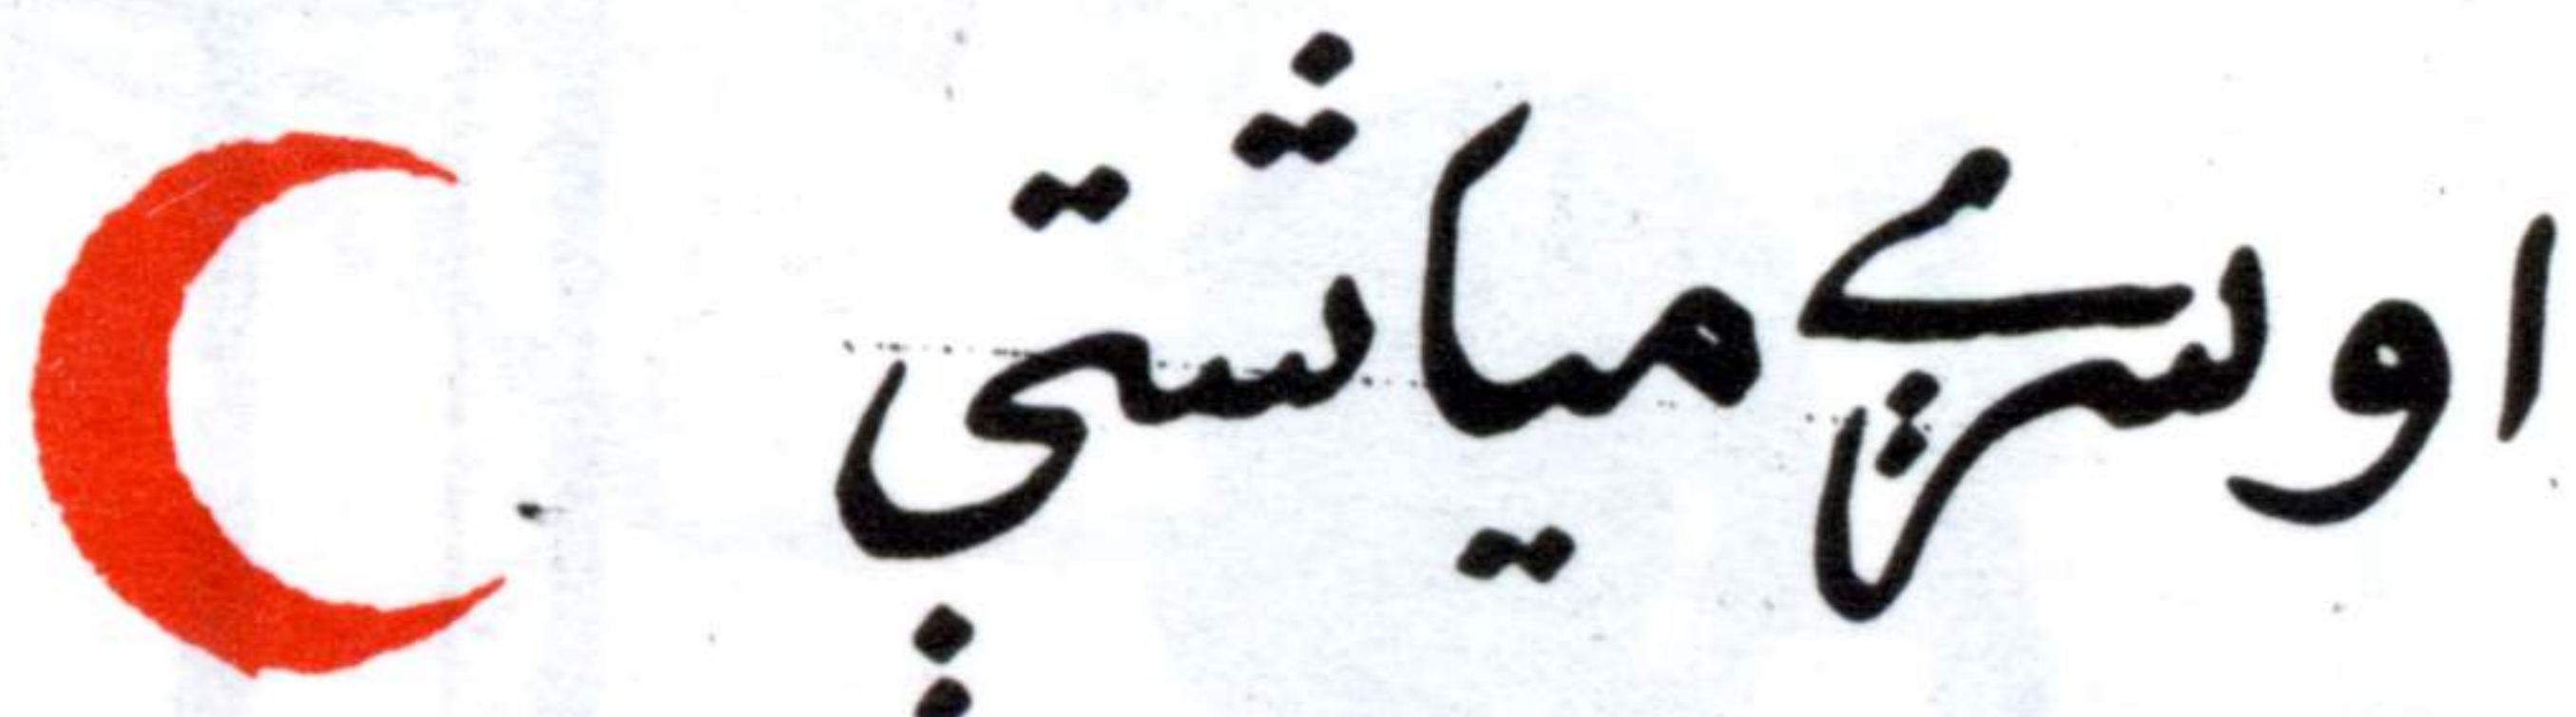 او سرې میاشتې